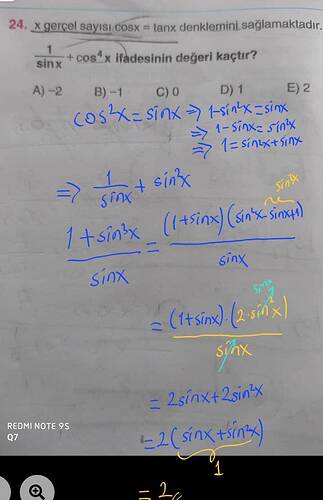 24. x gerçel sayısı cosx = tanx denklemini sağlamaktadır.
1/sinx + cos⁴x ifadesinin değeri kaçtır?
A) –2 B) –1 C) 0 D) 1 E) 2
cos²x = sinx ⇒ 1-sin²x = sinx
⇒ 1-sinx = sin²x
⇒ 1 = sin²x + sinx
⇒ 1/sinx + sin²x
sin²x
(1+sin³x)/sinx = (1+sinx)(sin²x-sinx+1)/sinx
sinx
= (1+sinx).(2.sin²x)/sinx
= 2sinx+2sin²x
= 2(sinx+sin²x)
1
= 2
REDMI NOTE 9S
Q7